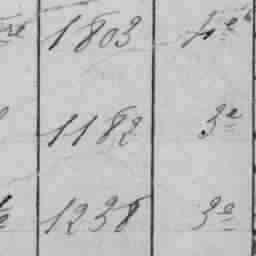 1803 4e
1182 3e
1238 3e